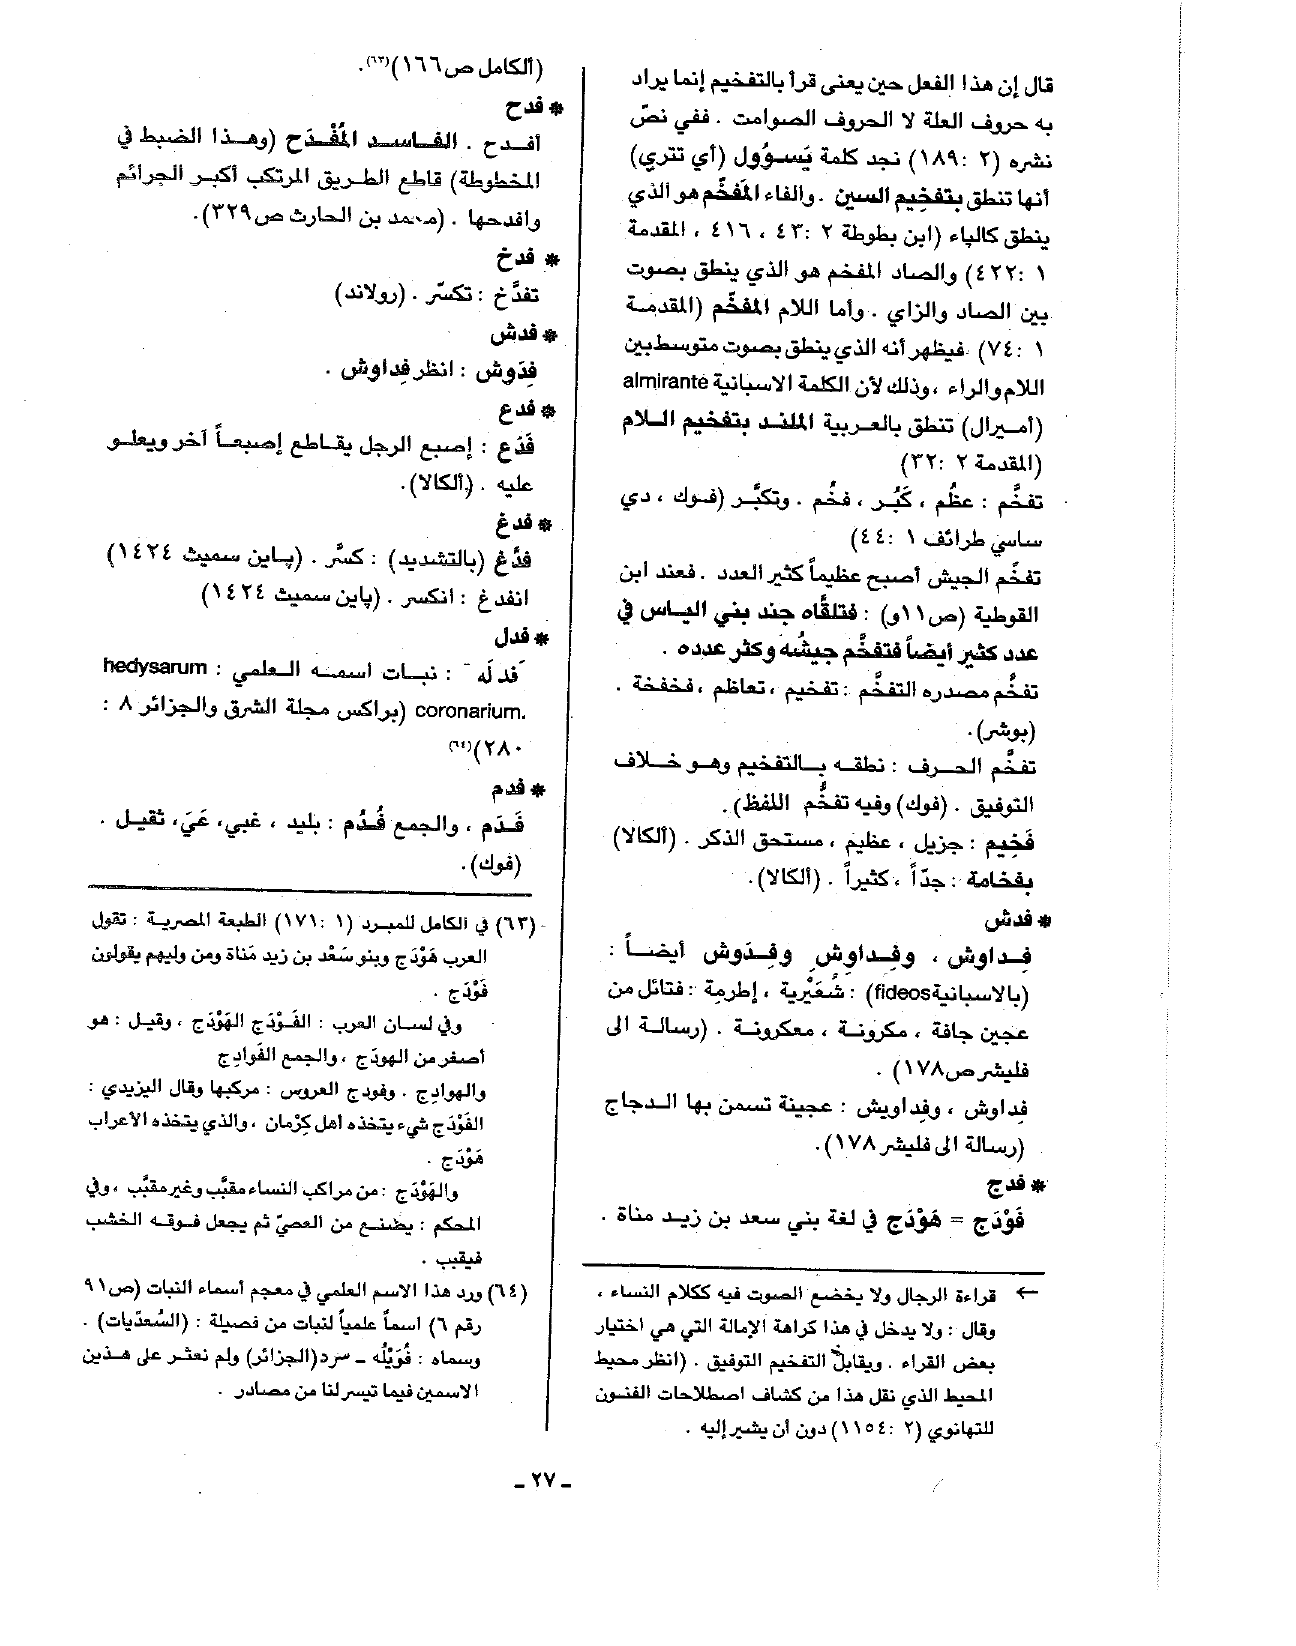 قال إن هذا الفعل حين يعنى قرأ بالتفخيم إنما يراد
به حروف العلة لا الحروف الصوامت . ففي نصّ
نشره (٢ :١٨٩) نجد كلمة يَسـؤُول (أي تتري)
أنها تنطق بتفخيم السين . والفاء المفخّم هو الذي
ينطق كالپاء (ابن بطوطة ٢ :٤٣ ، ٤١٦ ، المقدمة
١ :٤٢٢) والصاد المفخم هو الذي ينطق بصوت
بين الصاد والزاي . وأما اللام المفخّم (المقدمة
١ :٧٤) فيظهر أنه الذي ينطق بصوت متوسط بين
اللام والراء ، وذلك لأن الكلمة الاسبانية almirante
(أميرال) تنطق بالعربية الملند بتفخيم اللام
(المقدمة ٢ :٣٢)
تفخَّم : عظُم ، كَبُر ، فخُم . وتكبَّر (فوك ، دي
ساسي طرائف ١ :٤٤)
تفخَّم الجيش أصبح عظيماً كثير العدد . فعند ابن
القوطية (ص١١و) : فتلقَّاه جند بني الياس في
عدد كثير أيضاً فتفخَّم جيشُه وكثر عدده .
تفخُّم مصدره التفخُّم : تفخيم ، تعاظم ، فخفخة .
(بوشر).
تفخَّم الحرف : نطقه بالتفخيم وهو خلاف
التوفيق . (فوك) وفيه تفخُّم اللفظ).
فَخِيم : جزيل ، عظيم ، مستحق الذكر . (ألكالا)
بفخامة : جدّاً ، كثيراً . (ألكالا).
* فدش
فِداوش ، وفِداوِش وفِدَوش أيضاً :
(بالاسبانية fideos) : شُعَيْرية ، إطرِية : فتائل من
عجين جافة ، مكرونة ، معكرونة . (رسالة الى
فليشر ص١٧٨) .
فداوش ، وفِداويش : عجينة تسمن بها الدجاج
(رسالة الى فليشر ١٧٨).
* فدج
فَوْدَج = هَوْدَج في لغة بني سعد بن زيد مناة .
← قراءة الرجال ولا يخضع الصوت فيه ككلام النساء ،
وقال : ولا يدخل في هذا كراهة الإمالة التي هي اختيار
بعض القراء . ويقابل التفخيم التوفيق . (انظر محيط
المحيط الذي نقل هذا من كشاف اصطلاحات الفنون
للتهانوي (٢ :١١٥٤) دون أن يشير إليه .
(ألكامل ص١٦٦)(٦٣).
* فدح
أفدح . الفاسد المُفْدَح (وهذا الضبط في
المخطوطة) قاطع الطريق المرتكب أكبر الجرائم
وافدحها . (محمد بن الحارث ص٣٢٩).
* فدخ
تفدَّخ : تكسّر . (رولاند)
* فدش
فِدَوش : انظر فِداوش .
* فدع
فَدَع : إصبع الرجل يقاطع إصبعاً آخر ويعلو
عليه . (ألكالا).
* فدغ
فدَّغ (بالتشديد) : كسَّر . (پاين سميث ١٤٢٤)
انفدغ : انكسر . (پاين سميث ١٤٢٤)
* فدل
فدلَه : نبات اسمه العلمي : hedysarum
coronarium. (براكس مجلة الشرق والجزائر ٨ :
٢٨٠)(٦٤)
* فدم
فَدَم ، والجمع فُدُم : بليد ، غبي، عَيَ، ثقيل .
(فوك).
(٦٣) في الكامل للمبرد (١ :١٧١) الطبعة المصرية : تقول
العرب هَوْدَج وبنو سَعْد بن زيد مَناة ومن وليهم يقولون
فَوْدَج .
وفي لسان العرب : الفَوْدَج الهَوْدَج ، وقيل : هو
أصغر من الهودَج ، والجمع الفَوادِج
والهوادِج . وفودج العروس : مركبها وقال اليزيدي :
الفَوْدَج شيء يتخذه أهل كِرْمان ، والذي يتخذه الأعراب
هَوْدَج .
والهَوْدَج : من مراكب النساء مقبَّب وغير مقبَّب ، وفي
المحكم : يصنع من العصيّ ثم يجعل فوقه الخشب
فيقبب .
(٦٤) ورد هذا الاسم العلمي في معجم أسماء النبات (ص٩١
رقم ٦) اسماً علمياً لنبات من فصيلة : (السُّعدَّيات) .
وسماه : فُوَيْلُه ـ سرد(الجزائر) ولم نعثر على هذين
الاسمين فيما تيسر لنا من مصادر .
ـ ٢٧ ـ